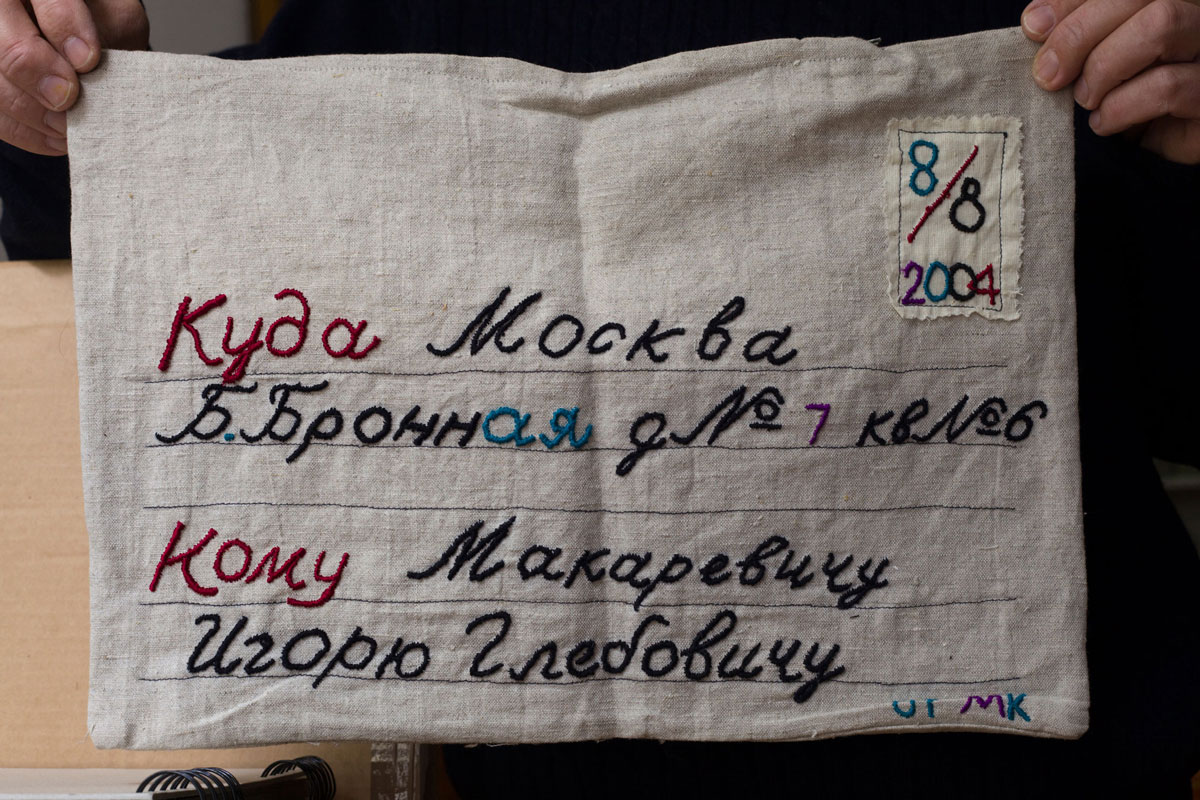 8/8
2004
Куда Москва
Б.Бронная д№ 7 кв№6
Кому Макаревичу
Игорю Глебовичу
от МК